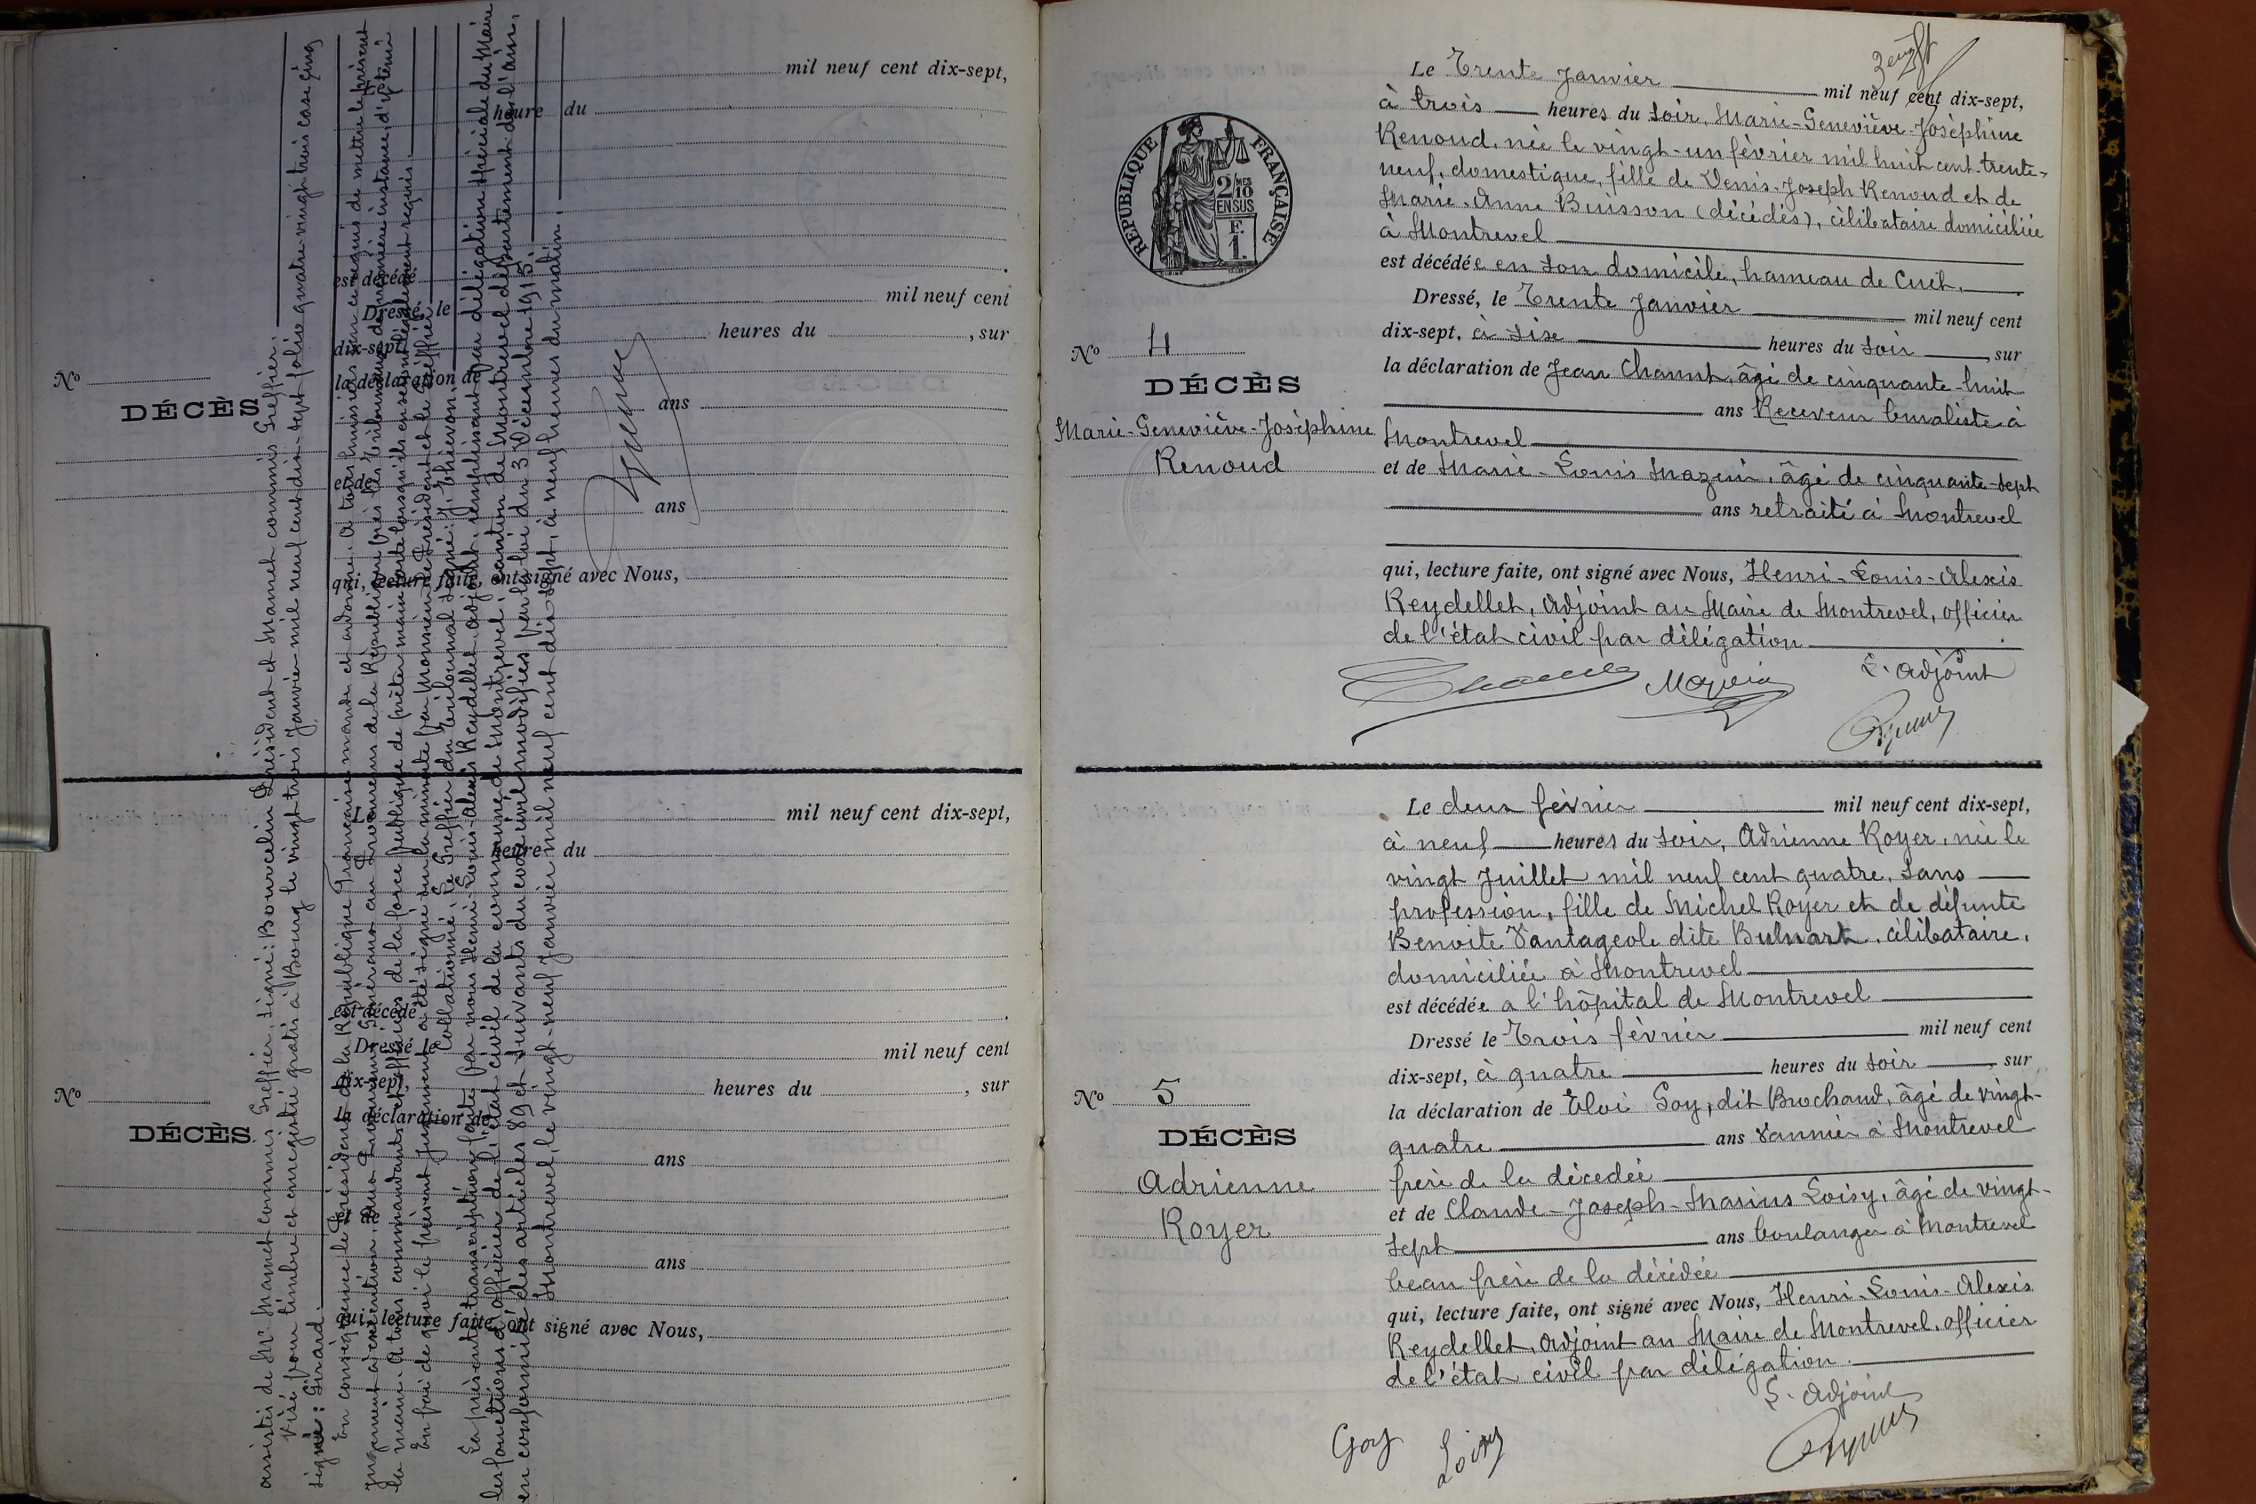 assistés de Mr Mamet commis Greffier, Signé: Bourcelin Président et Mamet commis Greffier.
Visé pour timbre et enregistré gratis à Bourg le vingt trois Janvier mil neuf cent dix-sept folio quatre-vingt trois case cinq
signé: Girard.
En conséquence le Président de la République Française mande et ordonne. A tous huissiers sur ce requis de mettre le présent
jugement à exécution. Aux Procureurs Généraux au Procureurs de la République près les Tribunaux de première instance, d'y tenir
la main. A tous commandants et officiers de la force publique de prêter main forte lorsqu'ils en seront légalement requis.
En foi de quoi le présent Jugement a été signé sur la minute par monsieur le Président et le Greffier
Collationné, le Greffier du tribunal signé:
La présente transcription faite par nous Henri-Louis-Alexis Reydellet adjoint, remplissant par délégation spéciale du Maire
les fonctions d'officier de l'état civil de la commune de Montrevel, canton de Montrevel département de l'Ain,
en conformité des articles 89 et suivants du code civil modifiés par la loi du 3 Décembre 1915.
Montrevel, le vingt-neuf Janvier mil neuf cent dix sept, à neuf heures du matin.
mil neuf cent dix-sept,
heure du
est décédé
Dressé, le mil neuf cent
dix-sept, heures du , sur
No
la déclaration de
DÉCÈS
ans
et de
ans
qui, lecture faite, ont signé avec Nous,
Le mil neuf cent dix-sept,
heure du
est décédé
Dressé le mil neuf cent
dix-sept, heures du , sur
No
la déclaration de
DÉCÈS
ans
et de
ans
qui, lecture faite, ont signé avec Nous,
RÉPUBLIQUE FRANÇAISE
2/10MES
EN SUS
F.
1.
Le Trente Janvier mil neuf cent dix-sept,
à trois heures du soir, Marie-Geneviève-Joséphine
Renoud, née le vingt-un février mil huit cent trente-
neuf, domestique, fille de Denis-Joseph Renoud et de
Marie-Anne Buisson (décédés), célibataire domiciliée
à Montrevel
est décédée en son domicile, hameau de Cuet.
Dressé, le Trente Janvier mil neuf cent
dix-sept, à six heures du soir, sur
No 4
DÉCÈS
Marie-Geneviève-Joséphine
Renoud
la déclaration de Jean Chanut, âgé de cinquante-huit
ans Receveur buraliste à
Montrevel
et de Marie-Louis Mazuir, âgé de cinquante-sept
ans retraité à Montrevel
qui, lecture faite, ont signé avec Nous, Henri-Louis-Alexis
Reydellet, Adjoint au Maire de Montrevel, officier
de l'état civil par délégation
L'adjoint
Le deux février mil neuf cent dix-sept,
à neuf heures du soir, Adrienne Royer, née le
vingt Juillet mil neuf cent quatre, sans
profession, fille de Michel Royer et de défunte
Benoite Vantageole dite Bulnart, célibataire,
domiciliée à Montrevel
est décédée a l'hôpital de Montrevel
Dressé le Trois février mil neuf cent
dix-sept, à quatre heures du soir, sur
No 5
DÉCÈS
Adrienne
Royer
la déclaration de Eloi Goy, dit Brochand, âgé de vingt-
quatre ans vannier à Montrevel
frère de la décédée
et de Claude-Joseph-Marius Loisy, âgé de vingt-
sept ans boulanger à Montrevel
beau frère de la décédée
qui, lecture faite, ont signé avec Nous, Henri-Louis-Alexis
Reydellet, adjoint au Maire de Montrevel, officier
de l'état civil par délégation.
L'adjoint
Goy Loisy